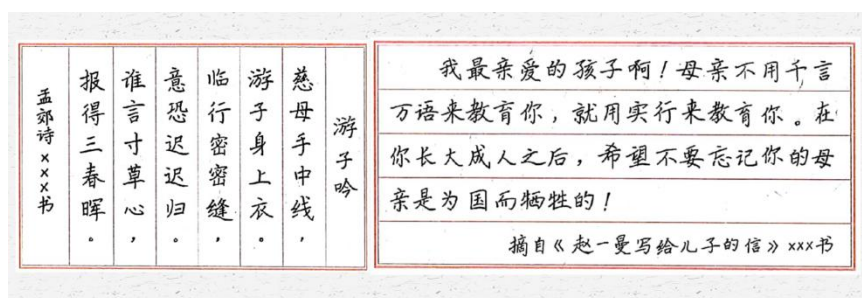 游子吟
慈母手中线，
游子身上衣。
临行密密缝，
意恐迟迟归。
谁言寸草心，
报得三春晖。
孟郊诗 xxx书
我最亲爱的孩子啊！母亲不用千言
万语来教育你，就用实行来教育你。在
你长大成人之后，希望不要忘记你的母
亲是为国而牺牲的！
摘自《赵一曼写给儿子的信》xxx书